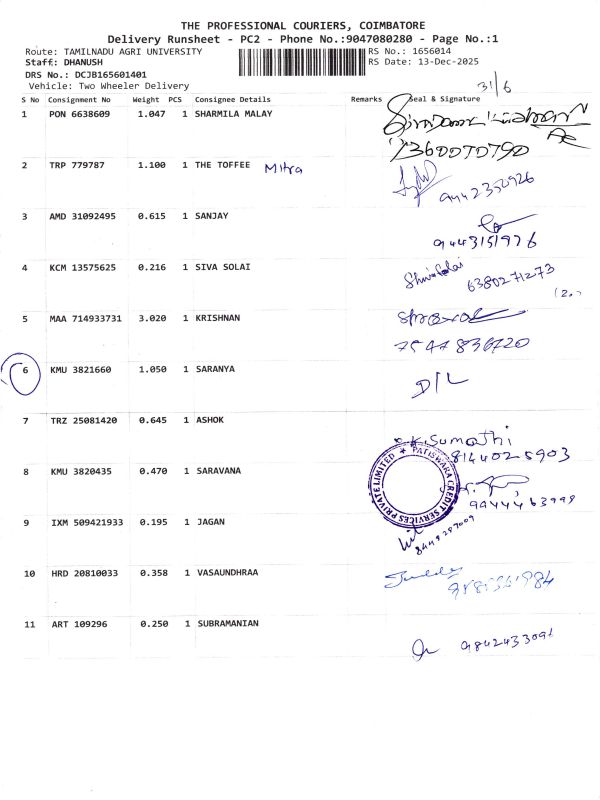 THE PROFESSIONAL COURIERS, COIMBATORE
Delivery Runsheet - PC2 - Phone No.:9047080280 - Page No.:1
Route: TAMILNADU AGRI UNIVERSITY RS No.: 1656014
Staff: DHANUSH RS Date: 13-Dec-2025
DRS No.: DCJB165601401
Vehicle: Two Wheeler Delivery
31/6
S No Consignment No Weight PCS Consignee Details Remarks Seal & Signature
1 PON 6638609 1.047 1 SHARMILA MALAY
7360070790
2 TRP 779787 1.100 1 THE TOFFEE Mitra
9442350926
3 AMD 31092495 0.615 1 SANJAY
9443151976
4 KCM 13575625 0.216 1 SIVA SOLAI
6380271273
5 MAA 714933731 3.020 1 KRISHNAN
6 KMU 3821660 1.050 1 SARANYA D/L
7 TRZ 25081420 0.645 1 ASHOK
K.Sumathi
8144025903
8 KMU 3820435 0.470 1 SARAVANA
PATISWARA CREDIT SERVICES PRIVATE LIMITED
9444463999
9 IXM 509421933 0.195 1 JAGAN
10 HRD 20810033 0.358 1 VASAUNDHRAA
11 ART 109296 0.250 1 SUBRAMANIAN
9842433091